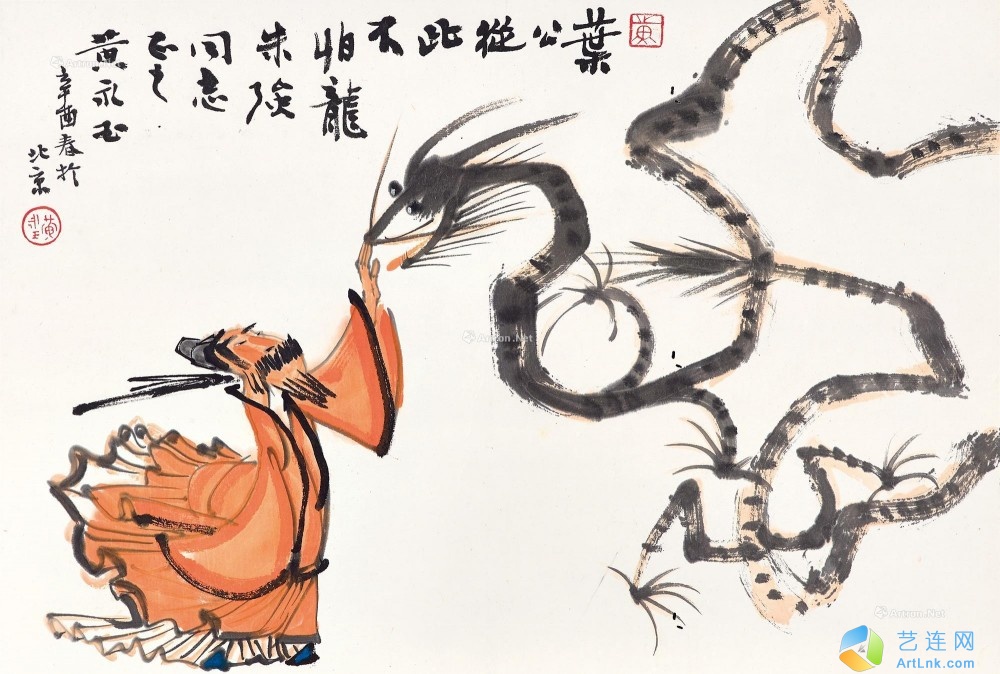 黄
葉公從此不
怕龍
朱
同志
正之
黄永玉
辛酉春於
北京
Artron.Net
Artron.Net
Artron.Net
Artron.Net
艺连网
ArtLnk.com